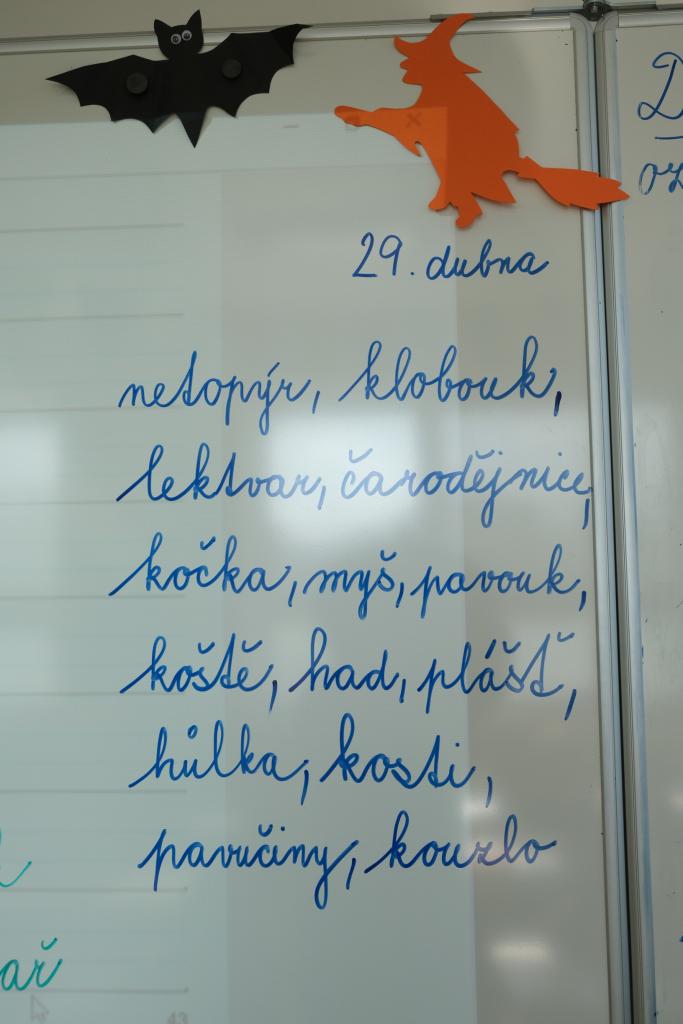 29. dubna
netopýr, klobouk,
lektvar, čarodějnice,
kočka, myš, pavouk,
koště, had, plášť,
hůlka, kosti,
pavučiny, kouzlo
ař
43
D
oz